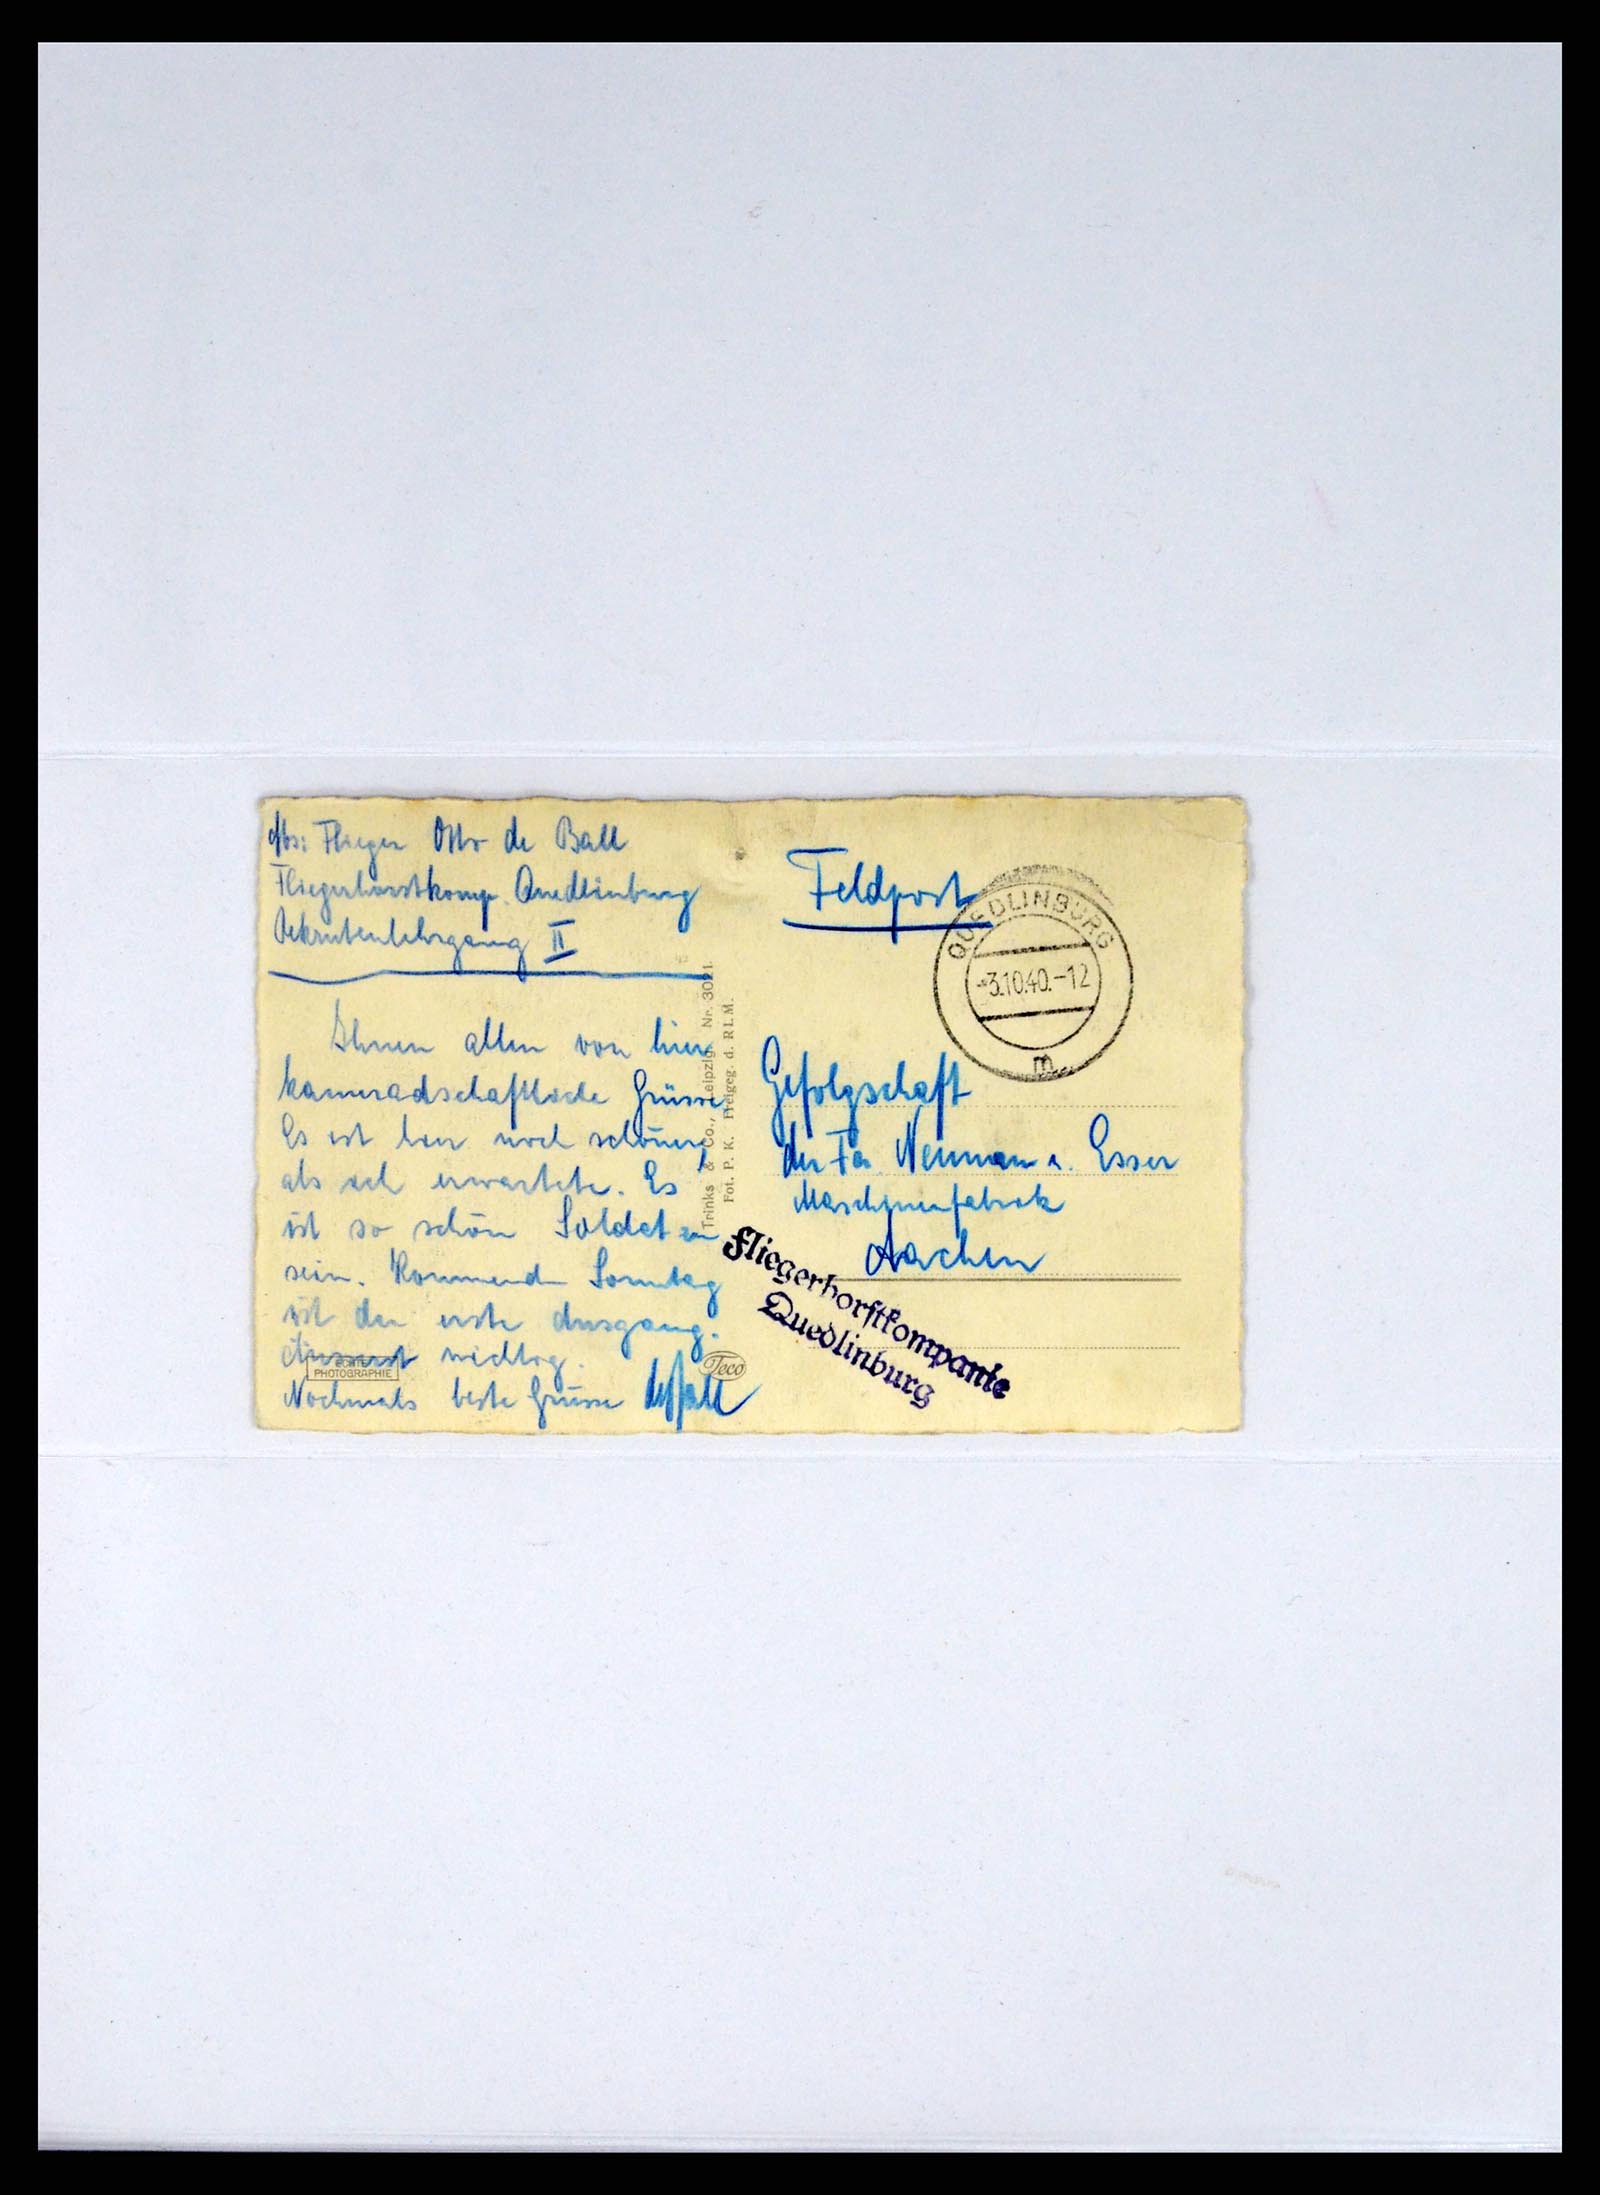 Abs: Flieger Otto de Ball
Fliegerhorstkomp. Quedlinburg
Rekrutenlehrgang II
Ihnen allen von hier
kameradschaftliche Grüsse
Es ist hier noch schöner,
als ich erwartete. Es
ist so schön Soldat zu
sein. Kommend Sonntag
ist der erste Ausgang.
Äusserst wichtig.
Nochmals beste Grüsse
ECHTE
PHOTOGRAPHIE
Trinks & Co., Leipzig Nr. 3021.
Fot. P. K. Freigeg. d. RLM.
Teco
Feldpost
QUEDLINBURG
-3.10.40.-12
m
Gefolgschaft
der Fa. Neuman u. Esser
Maschinenfabrik
Aachen
Fliegerhorstkompanie
Quedlinburg